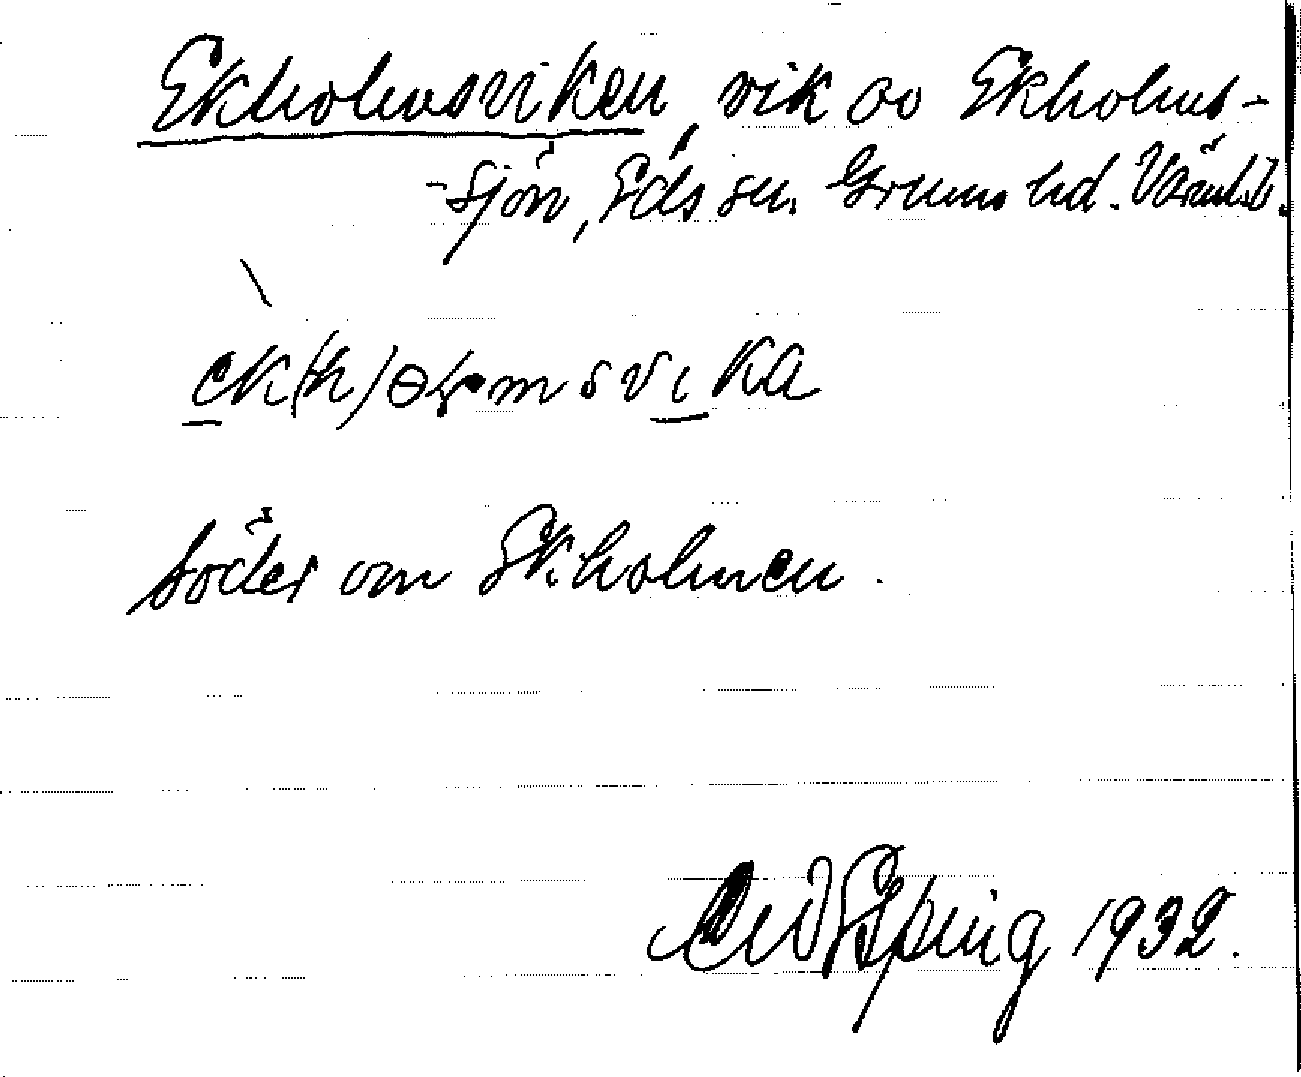 Ekholmsviken, vik av Ekholms-
-sjön, Eds sn. Grums hd. Värml.
ek(h)ɵɽmsvika
söder om Ekholmen.
1932.